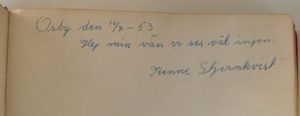 Osby den 14/2 - 53
Hej min vän vi ses väl ingen.
Sune Stjernkvist